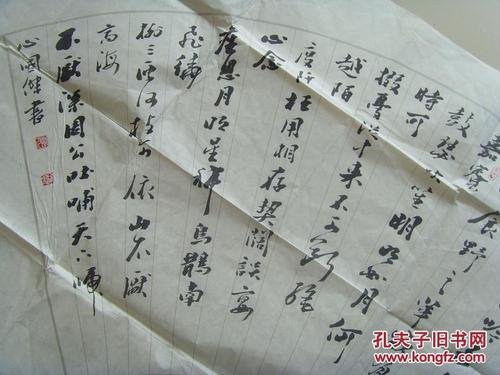 食野之苹
嘉賓
鼓瑟吹笙明明如月何
時可
掇憂從中来不可斷絶
越陌
度阡枉用相存契闊談宴
心念
舊恩月明星稀烏鵲南
飛繞
樹三匝何枝可依山不厭
高海
不厭深周公吐哺天下歸
心國書
孔夫子旧书网
www.kongfz.com